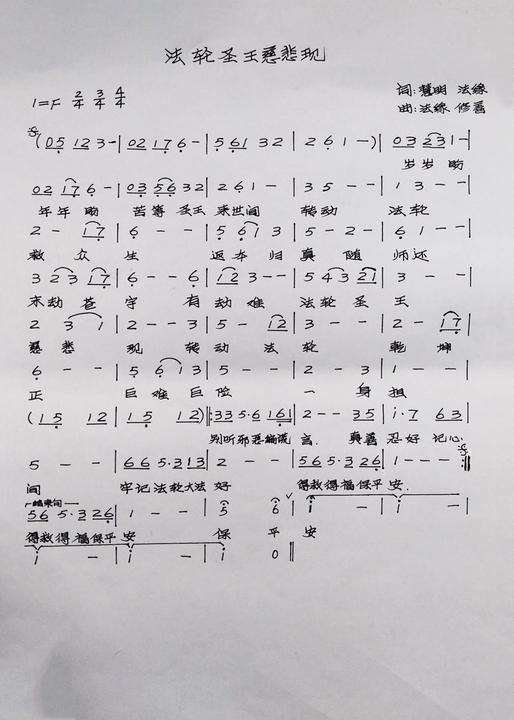 法轮圣王慈悲现
1=F 2/4 3/4 4/4
词:慧明 法缘
曲:法缘 修善
(05 12 3-|02 176-|5 61 32|2 6 1-)|03 23 1-|
岁岁盼
02 17 6-|03 56 32|2 6 1-|3 5 - -|1 3 - -|
年年盼 苦等圣王来世间 转动 法轮
2 - 17|6 - -|5 61 3|5 - 2 -|6 1 - -|
救众生 返本归真随师还
3 23 17|6 - - 6|12 3 - -|5 43 21|3 - - -|
末劫苍宇有劫难 法轮圣王
2 3 1|2 - - 3|5 - 12|3 - -|2 - 17|
慈悲 现转动法轮 乾坤
6 - -|5 61 3|5 - -|2 - 3|1 - -|
正 巨难巨险 一身担
(15 12|15 12):335·6 161|2 - - 35|i·7 63|
别听邪恶编谎言.真善忍好记心
5 - -|665·313|2 - -|565·326|1 - - -:||
间 牢记法轮大法好 得救得福保平安.
结束句
565·326|1 - -|5 6|i - -|i - -|
得救得福保平安 保 平 安
i -|i -|i -|i -|0||